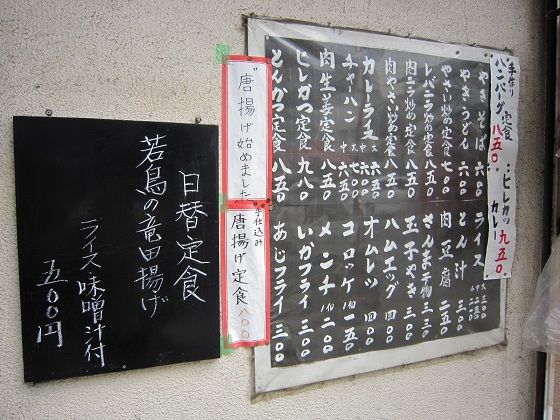 手作り
ハンバーグ定食
八五〇
ヒレカツ
カレー
九五〇
やきそば 六〇〇
やきうどん 六〇〇
やさい炒め定食 七〇〇
レバニラ炒め定食 八五〇
肉ニラ炒め定食 八五〇
肉やさい炒め定食 八五〇
カレーライス 大 七五〇
中 六五〇
チャーハン 大 七〇〇
中 六五〇
肉生姜定食 八五〇
ヒレカツ定食 九八〇
とんかつ定食 八五〇
ライス 大 三〇〇
中 二五〇
とん汁 二五〇
肉豆腐 二五〇
さんま干物 三五〇
玉子やき 三〇〇
ハムエッグ 四〇〇
オムレツ 四〇〇
コロッケ 1コ 一五〇
メンチ 1コ 二〇〇
いかフライ 三〇〇
あじフライ 三〇〇
唐揚げ始めました
手仕込み
唐揚げ定食 八〇〇
日替定食
若鳥の竜田揚げ
ライス味噌汁付
五〇〇円